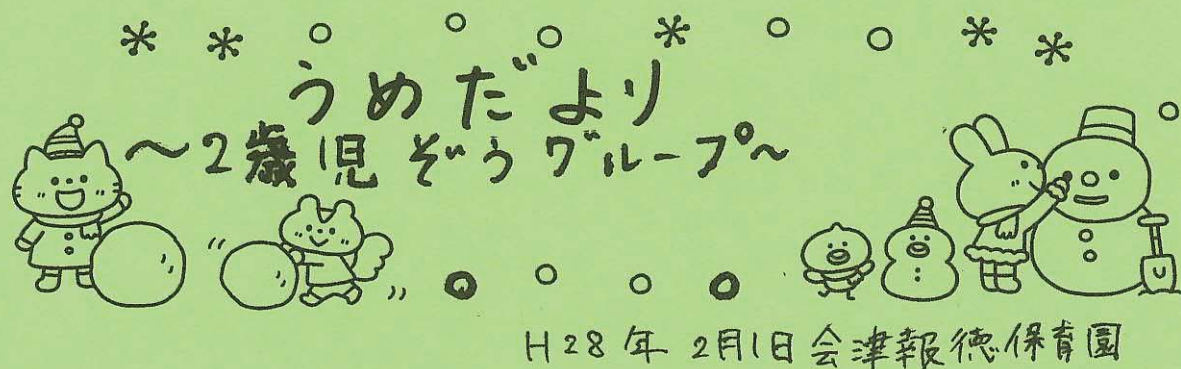 うめだより
～2歳児ぞうグループ～
H28年 2月1日会津報徳保育園